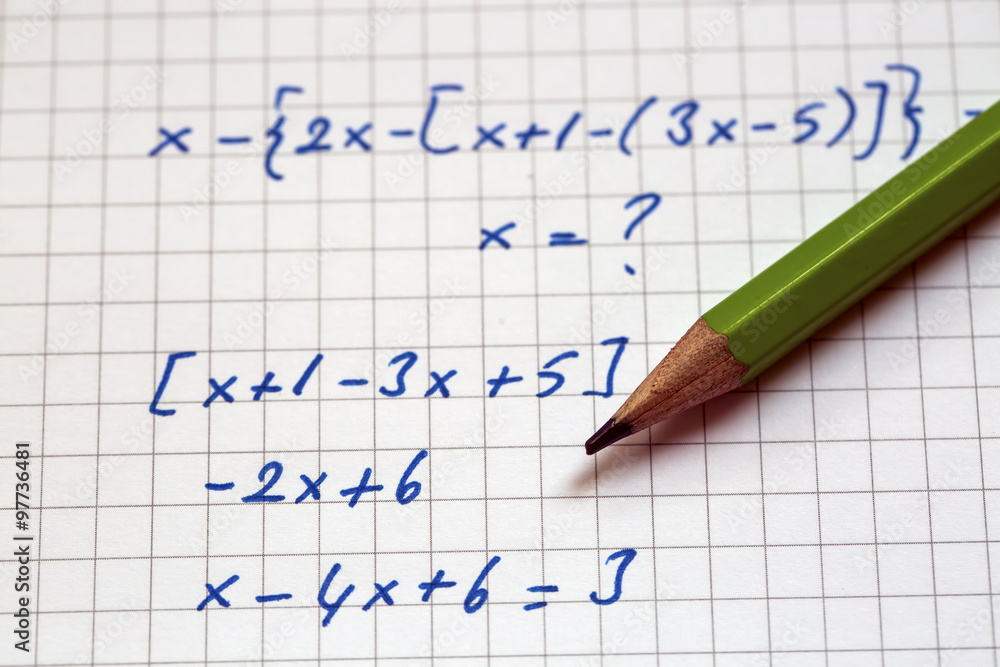 x - {2x - [x + 1 - (3x - 5)]} -
x = ?
[x + 1 - 3x + 5]
- 2x + 6
x - 4x + 6 = 3
Adobe Stock | #97736481